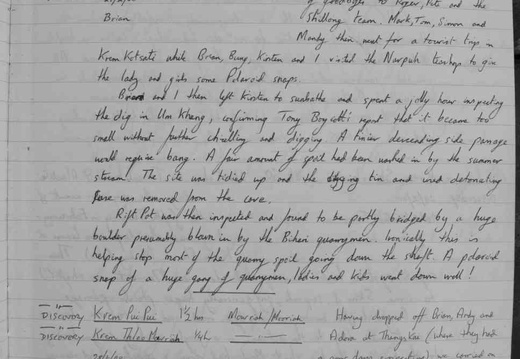 of goodbyes to Roper, Pete and the
Brian Shillong team. Mark, Tom, Simon and
Mandy then went for a tourist trip in
Krem Kotsati while Brian, Bung, Kirsten and I visited the Narpuh teashop to give
the lady and girls some Polaroid snaps.
Brian and I then left Kirsten to sunbathe and spent a jolly hour inspecting
the dig in Um Khang, confirming Tony Boycott's report that it became too
small without further chiselling and digging. A minor descending side passage
would require bang. A fair amount of spoil had been washed in by the summer
stream. The site was tidied up and the digging tin and used detonating
fuse was removed from the cave.
Rift Pot was then inspected and found to be partly bridged by a huge
boulder presumably blown in by the Bihari quarrymen. Ironically this is
helping stop most of the quarry spoil going down the shaft. A polaroid
snap of a huge gang of quarrymen, ladies and kids went down well!
DISCOVERY Krem Pui Pui 1½ hrs Mawriah/Morriah Having dropped off Brian, Andy and
DISCOVERY Krem Thloo Morriah ¼hr Adora at Thangskai (where they had